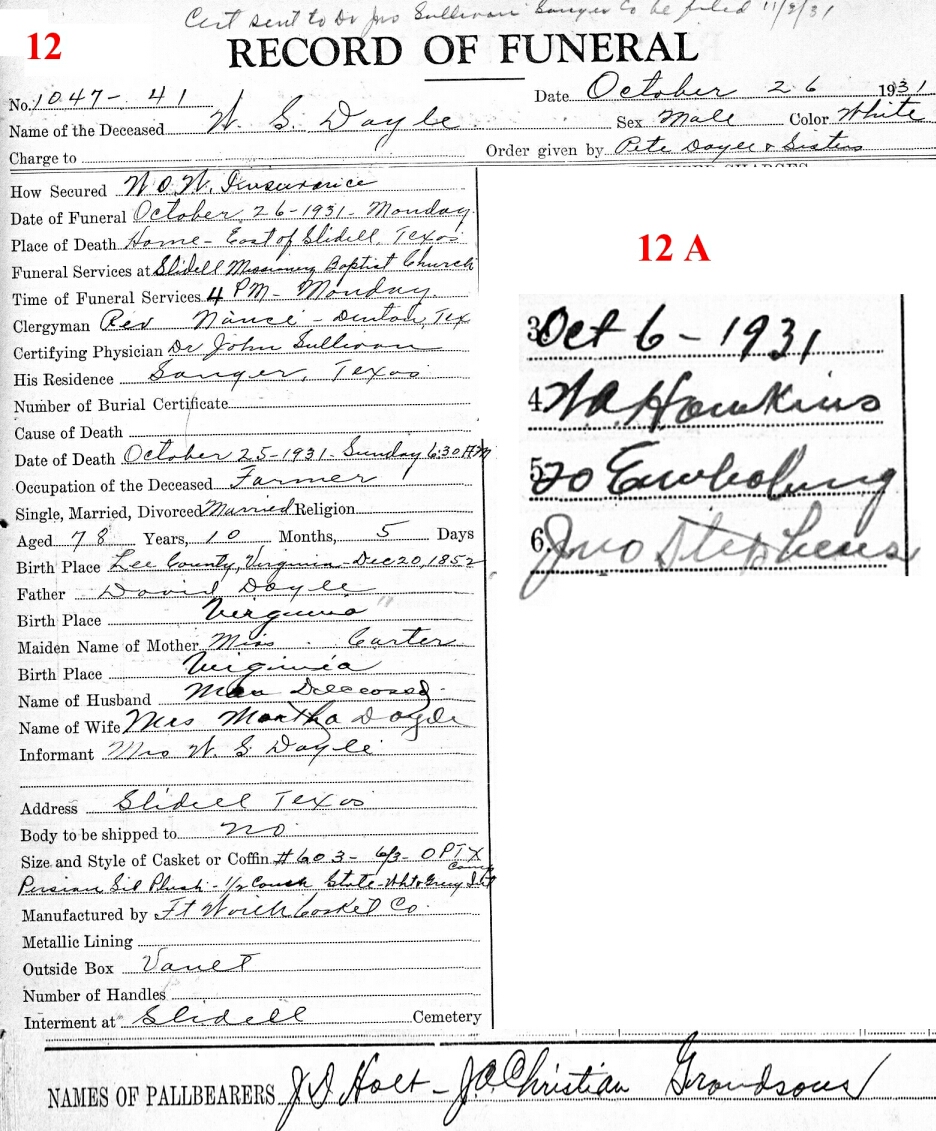 Cert sent to Dr Jno Sullivan Sanger to be filed 11/3/31
12
RECORD OF FUNERAL
No. 1047- 41
Date October 26 1931
Name of the Deceased W. S. Dayle Sex Male Color White
Charge to
Order given by Pete Dayle & Sisters
How Secured W.O.W. Insurance
Date of Funeral October, 26-1931- Monday
Place of Death Home- East of Slidell Texas
Funeral Services at Slidell Missionary Baptist Church
Time of Funeral Services 4 PM- Monday.
Clergyman Rev Nance - Denton, Tex
Certifying Physician Dr John Sullivan
His Residence Sanger, Texas
Number of Burial Certificate
Cause of Death
Date of Death October 25-1931- Sunday 6:30 AM
Occupation of the Deceased Farmer
Single, Married, Divorced Married Religion
Aged 78 Years, 10 Months, 5 Days
Birth Place Lee County, Virginia- Dec 20, 1852
Father David Dayle
Birth Place Virginia "
Maiden Name of Mother Miss . Carter
Birth Place Virginia
Name of Husband Man Deceased.
Name of Wife Mrs Martha Dayle
Informant Mrs W. S. Dayle
Address Slidell Texas
Body to be shipped to no
Size and Style of Casket or Coffin #603- 6/3- OPTX
Persian Sil Plush- 1/2 Couch State-
Manufactured by Ft Worth Casket Co.
Metallic Lining
Outside Box Vault
Number of Handles
Interment at Slidell Cemetery
NAMES OF PALLBEARERS J. D. Holt- J.A. Christian Grandsons
12 A
3 Oct 6-1931
4 W.A. Hawkins
5
6. Jno Stephens